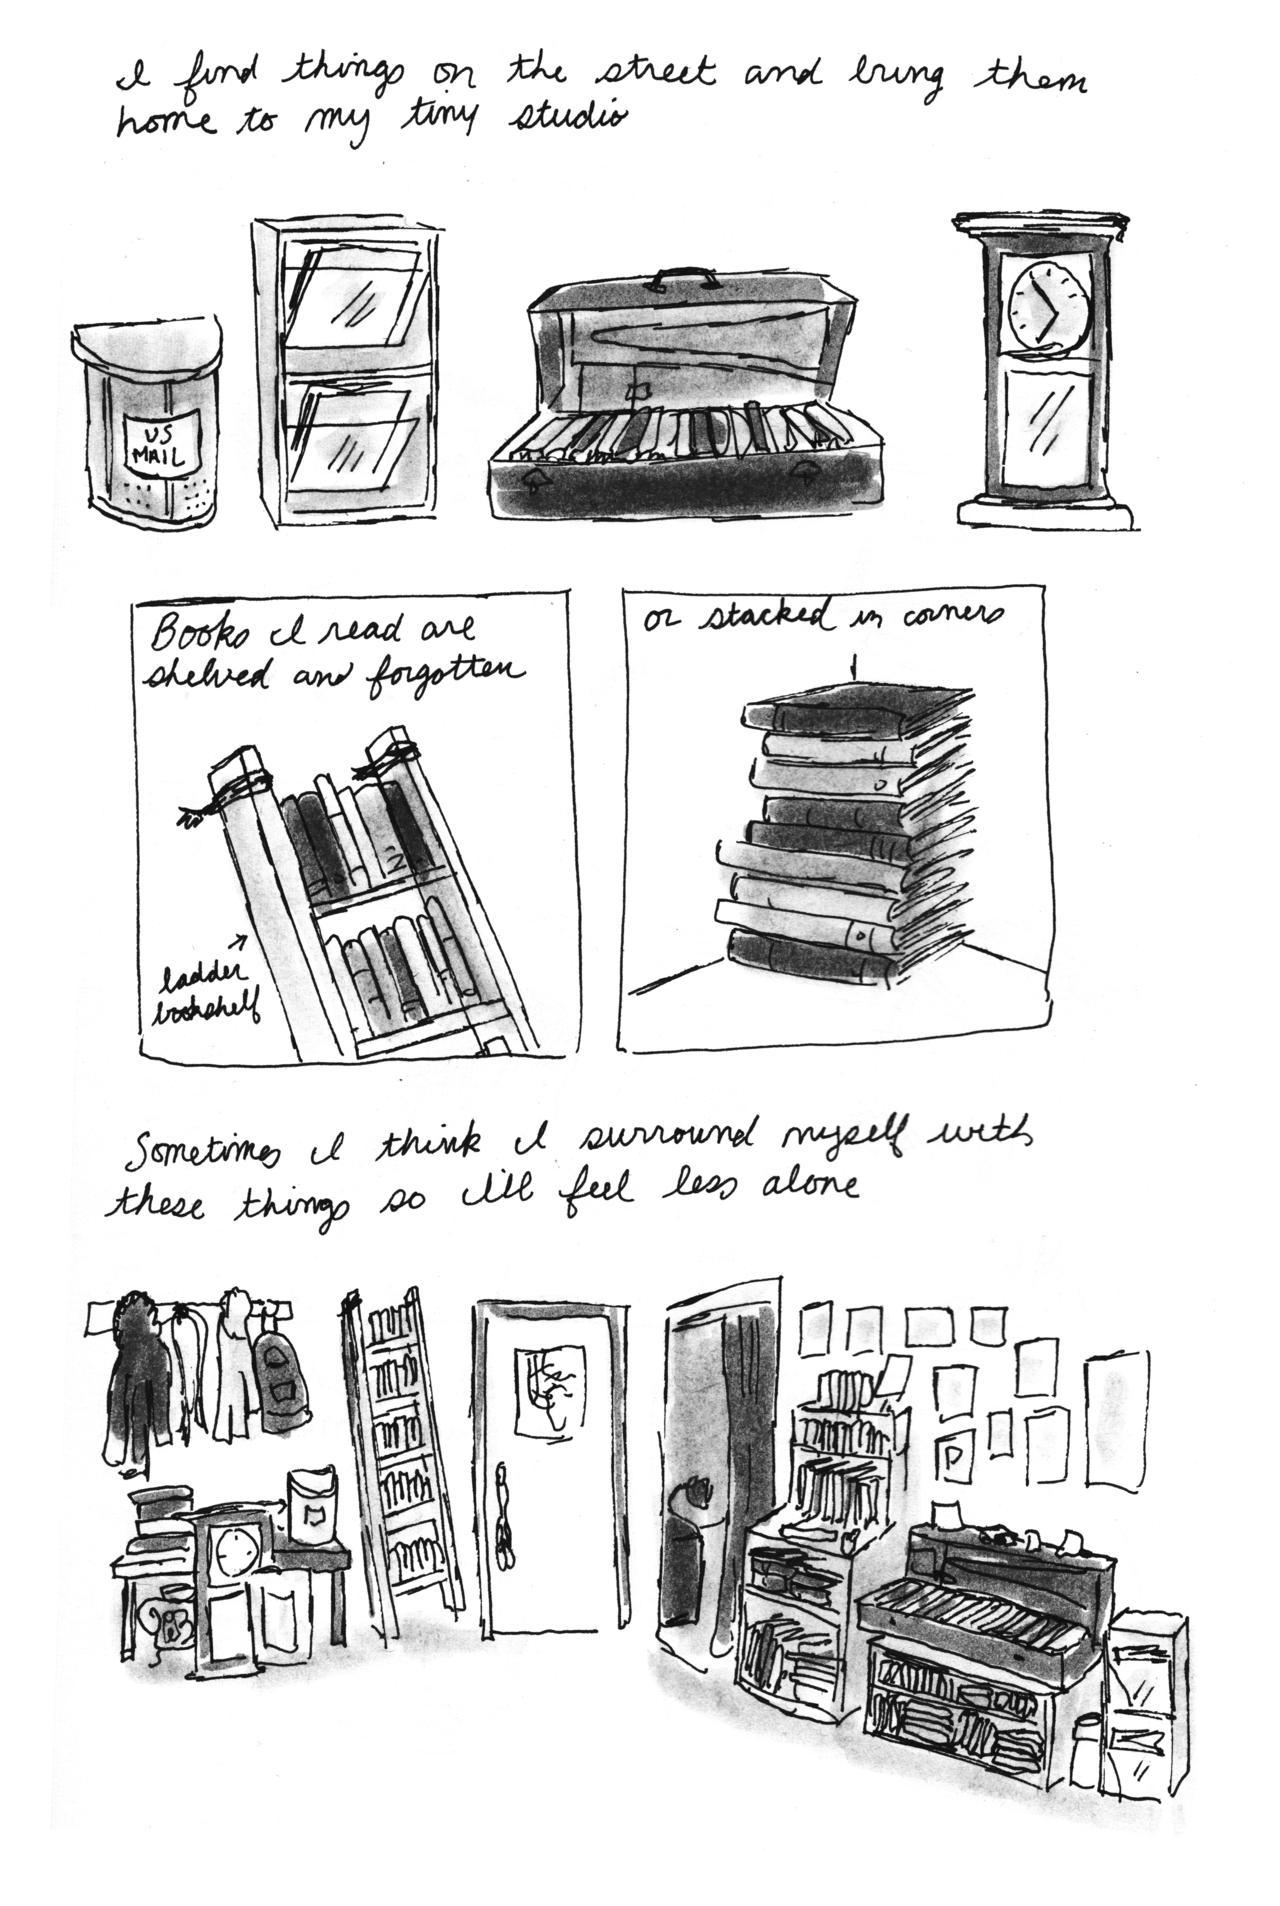 I find things on the street and bring them
home to my tiny studio
US
MAIL
Books I read are
shelved and forgotten
or stacked in corners
ladder
bookshelf
Sometimes I think I surround myself with
these things so I'll feel less alone
P